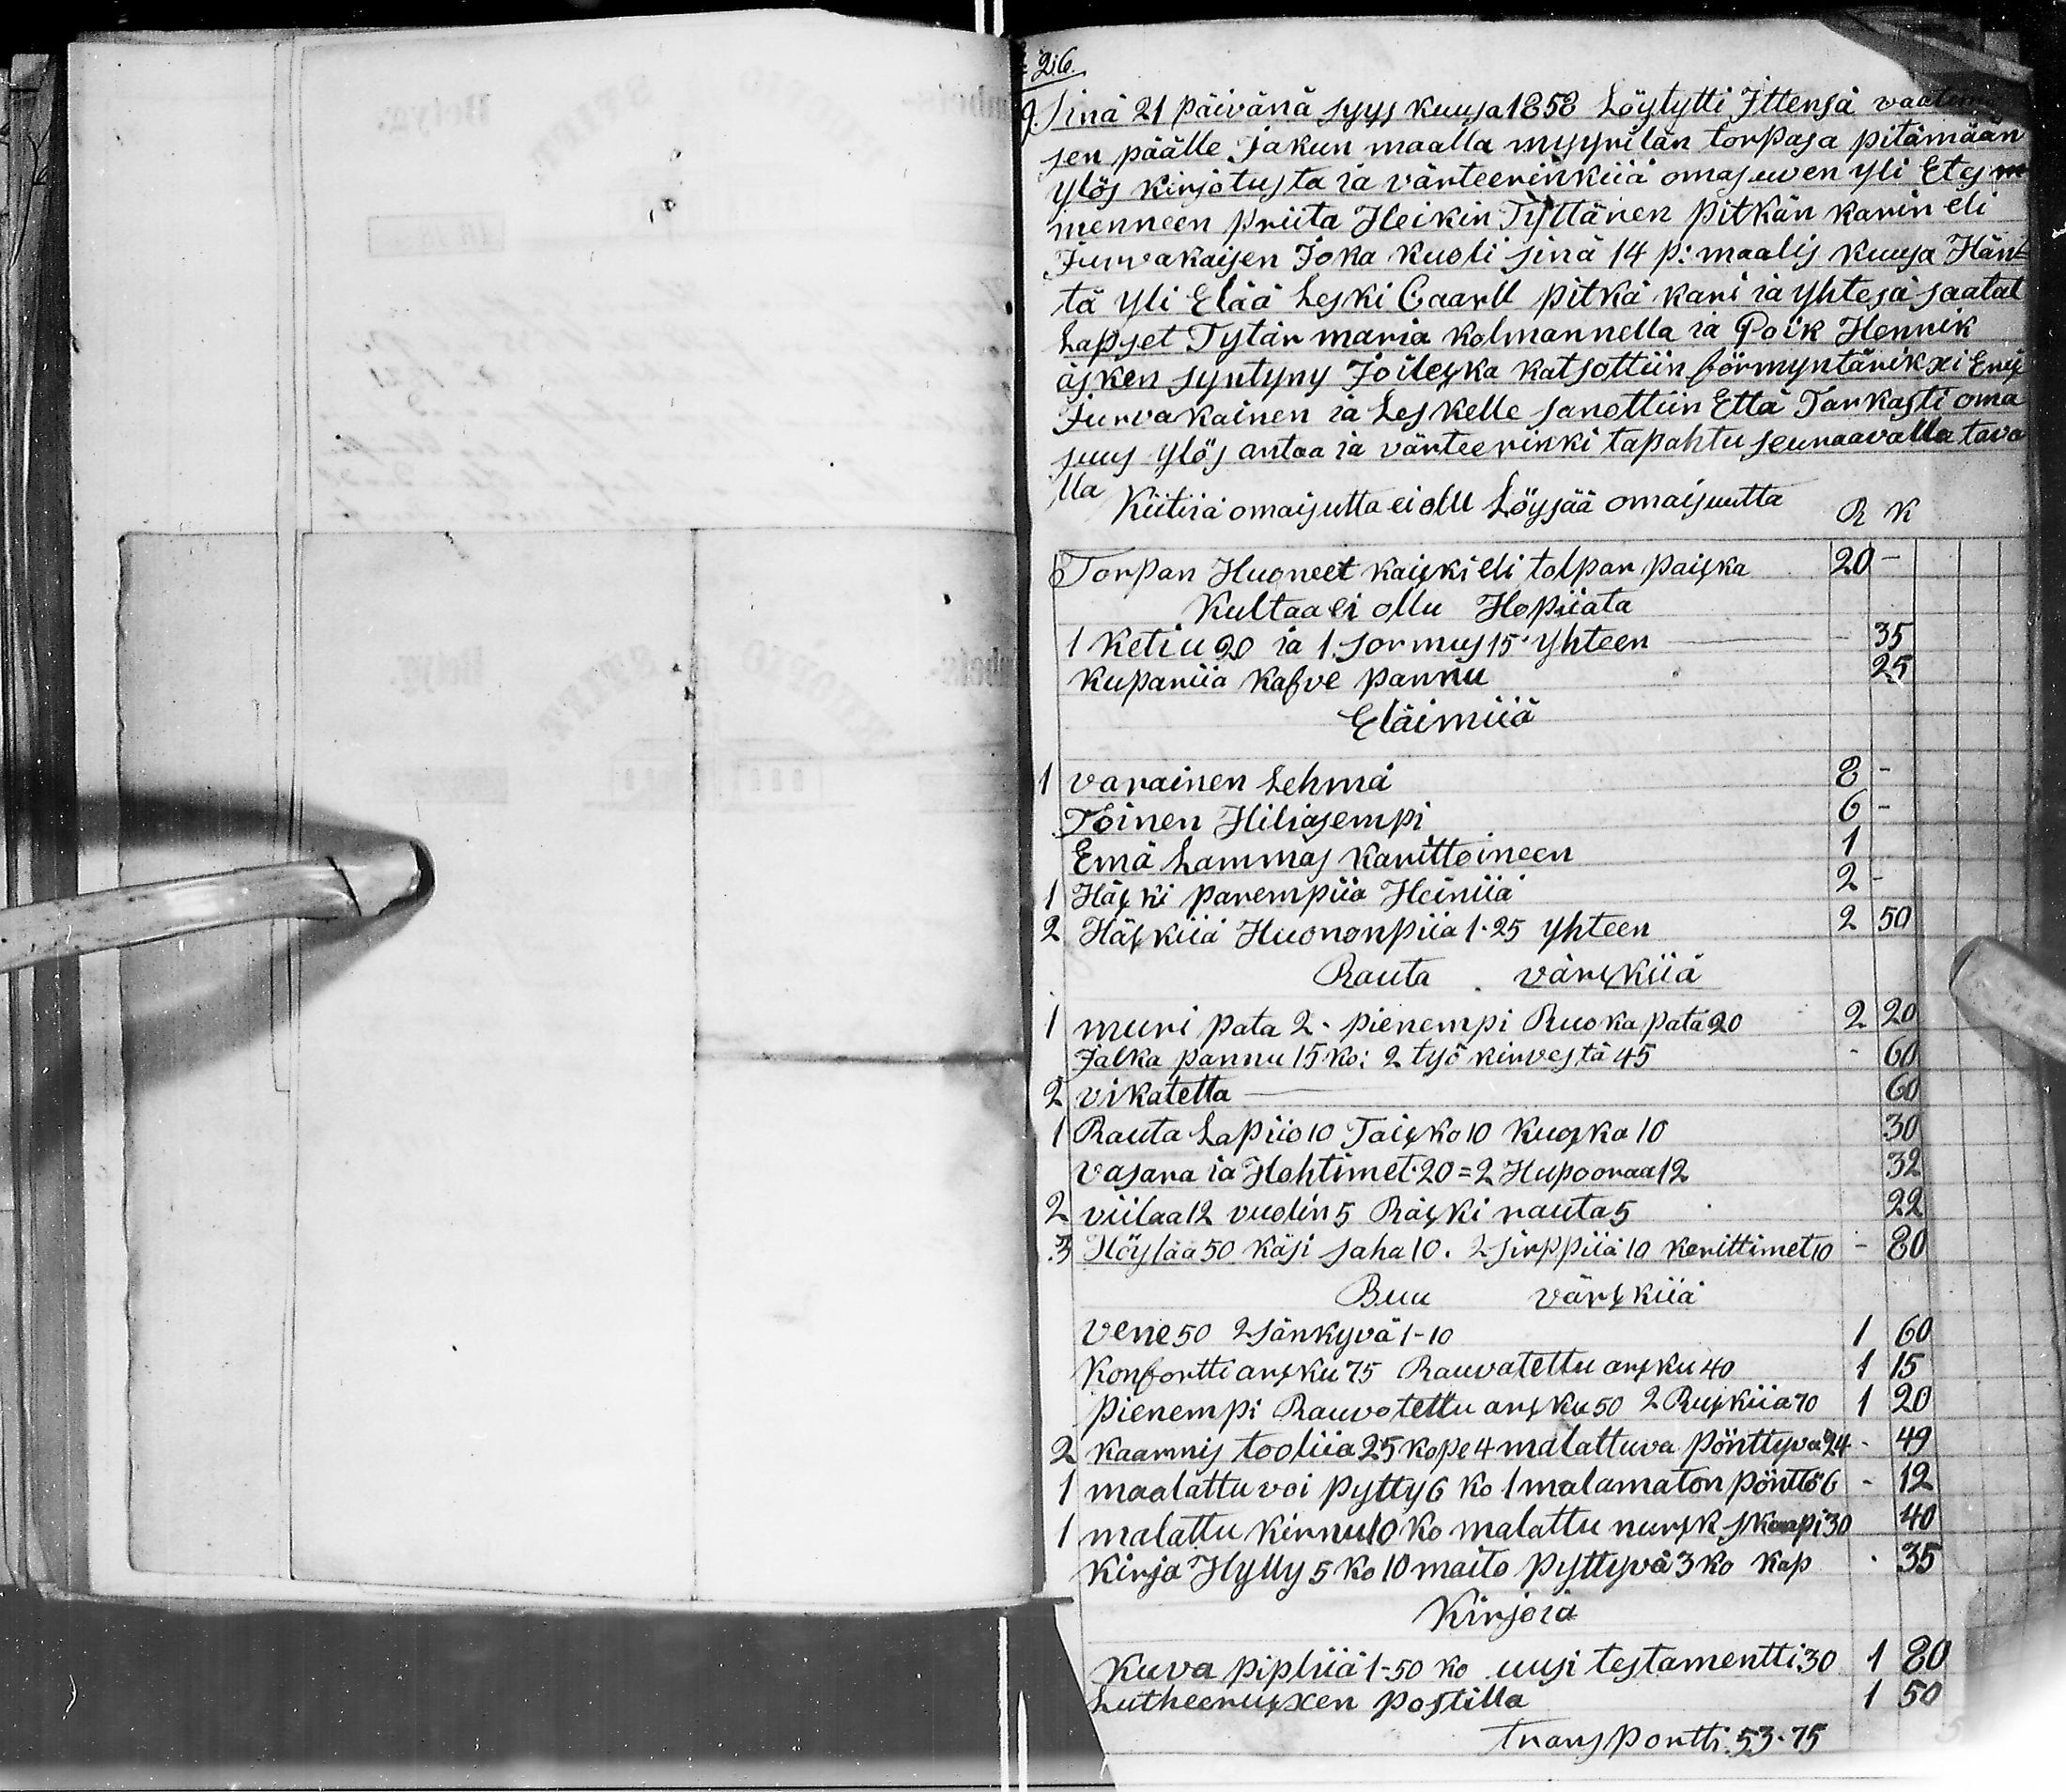 26.
Sinä 21 päivänä syys kuusa 1858 Löytytti Ittensä
sen päälle Jakun maalla myyrilän torpasa pitämään
ylös kirjotusta ia värteerinkiiä omasuven yli Etes m
menneen priita Heikin Tyttären Pitkän karin eli
Jurvakaisen Joka kuoli sinä 14 p: maalis kuusa Hänt
tä yli Elää Leski Caarll pitkä kari ia yhtesä saatat
Lapset Tytär maria kolmannella ia Poik Henrik
äsken syntyny Joilexka katsottiin förmyntärikxi Erix
Jurvakainen ia Leskelle sanottiin Että Tarkasti oma
suus ylös antaa ia värteerinki tapahtu seuraavalla tava
lla
Kiitiiä omaisutta ei ollu Löysää omaisuutta R K
Torpan Huoneet kaixki eli tolpan paixka 20 -
Kultaa ei ollu Hopiiata
1 ketiu 20 ia 1 sormus 15 yhteen - 35
kupariia kafve pannu 25
Eläimiiä
1 varainen Lehmä 8 -
Toinen Hiliasempi 6 -
Emä Lammas karittoineen 1
1 Häxki parempiia Heiniiä 2 -
2 Häxkiiä Huononpiia 1-25 yhteen 2 50
Rauta värxkiiä
1 muuri pata 2 - pienempi Ruoka pata 20 2 20
Jalka pannu 15 ko: 2 työ kirvestä 45 - 60
2 vikatetta 60
1 Rauta Lapiio 10 Taixko 10 kuoxka 10 30
vasara ia Hohtimet 20 = 2 Hupooraa 12 32
2 viilaa 12 vuolin 5 Räxki rauta 5 22
3 Höylää 50 käsi saha 10. 2 sirppiiä 10 kerittimet 10 - 80
Buu värxkiiä
vene 50 2 sänkyvä 1-10 1 60
Konfortti arxku 75 Rauvatettu arxku 40 1 15
pienempi Rauvotettu arxku 50 2 Ruxkiia 70 1 20
2 kaarnis tooliia 25 kope 4 malattuva pönttyvä 24 - 49
1 maalattu voi pytty 6 ko 1 malamaton pönttö 6 - 12
1 malattu kirnu 10 ko malattu nurxk skaapi 30 40
kirja Hylly 5 ko 10 maito pyttyvä 3 ko kap - 35
Kirjoia
Kuva pipliiä 1-50 ko uusi testamentti 30 1 80
Lutheeruxxen postilla 1 50
Transportti 53.75